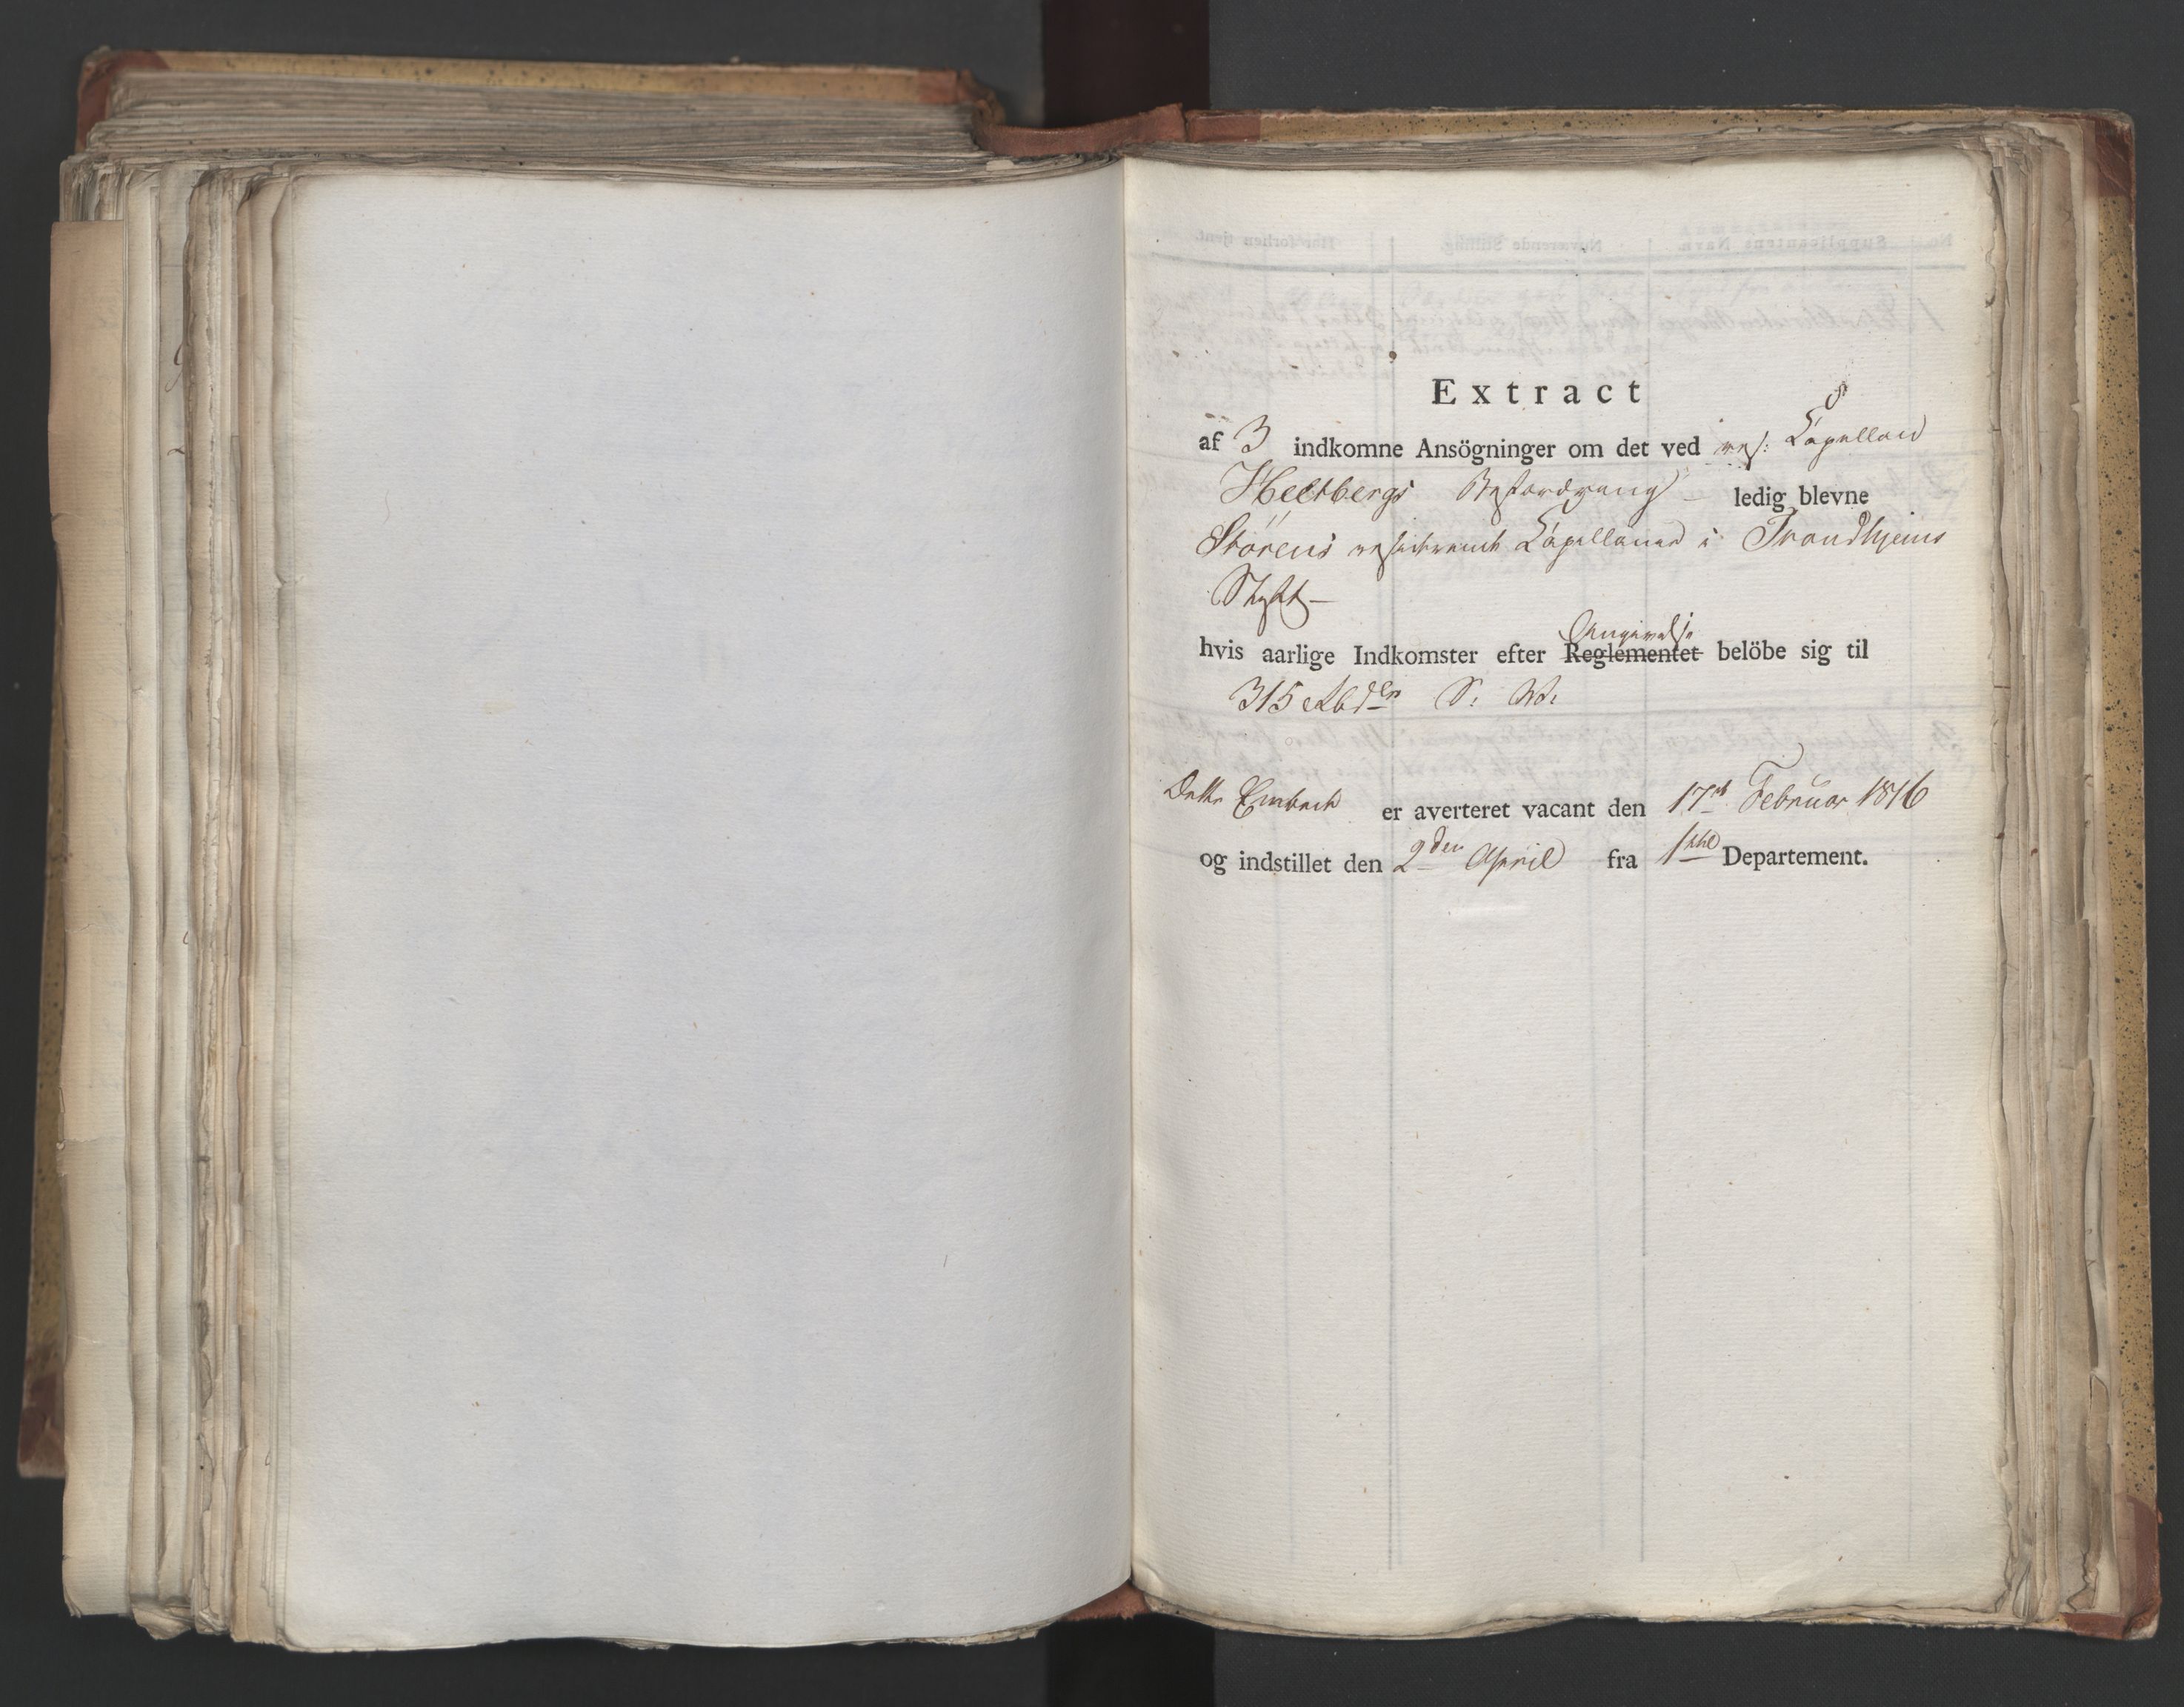 Extract
af 3 indkomne Ansögninger om det ved res: Capellan
Heltbergs Befordrung ledig blevne
Störens residerende Capellanie i Trondhjems
Stift
Angivelse
hvis aarlige Indkomster efter Reglementet belöbe sig til
315 Rbdlr S. V.
Dette Embede er averteret vacant den 17de Februar 1816
og indstillet den 2den April fra 1ste Departement.